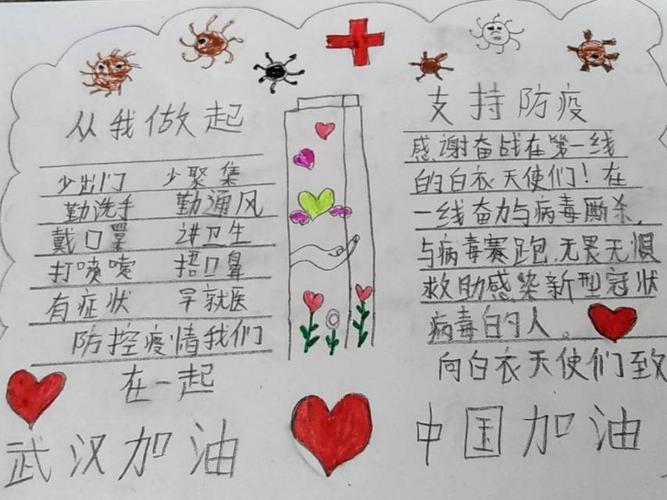 从我做起
少出门 少聚集
勤洗手 勤通风
戴口罩 讲卫生
打喷嚏 捂口鼻
有症状 早就医
防控疫情我们
在一起
武汉加油
支持防疫
感谢奋战在第一线
的白衣天使们！在
一线奋力与病毒厮杀，
与病毒赛跑，无畏无惧
救助感染新型冠状
病毒的人。
向白衣天使们致
中国加油